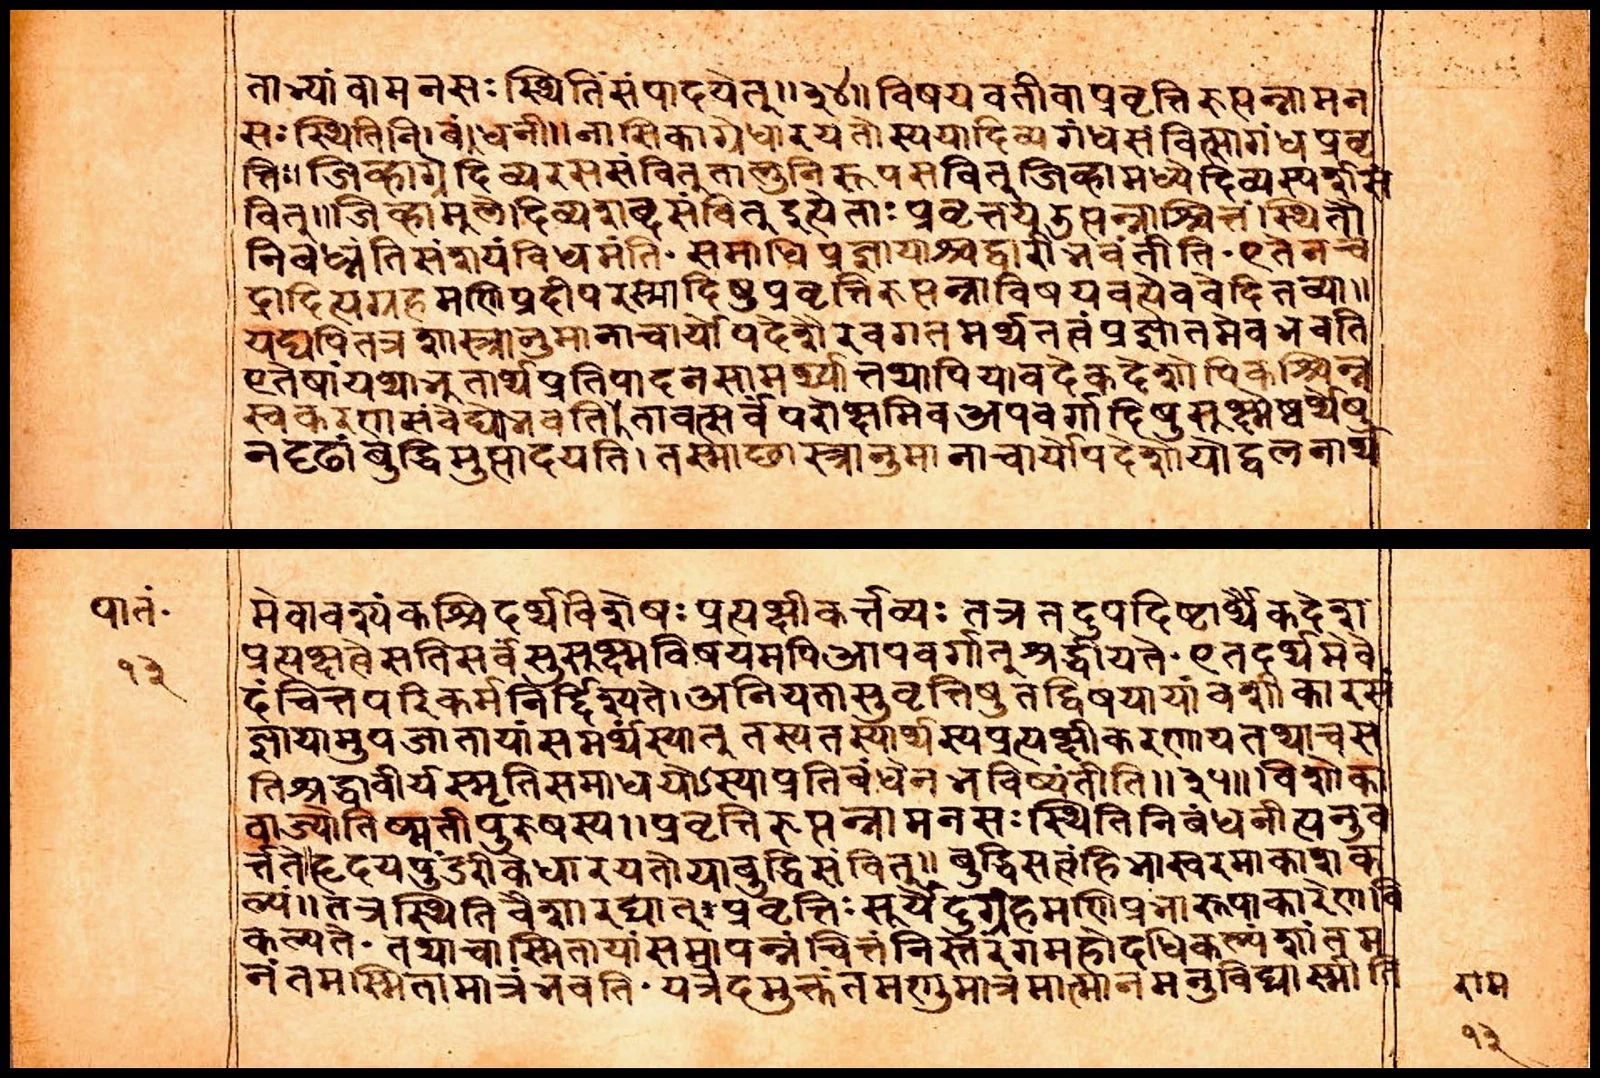 ताभ्यां वा मनसः स्थितिं संपादयेत्॥३४॥ विषयवती वा प्रवृत्तिरुत्पन्ना मन
सः स्थितिनिबंधनी॥ नासिकाग्रे धारयतोस्य या दिव्यगंधसंवित्सा गंधप्रवृ
त्तिः॥ जिव्हाग्रे दिव्यरससंवित् तालुनि रूपसंवित् जिव्हामध्ये दिव्यस्पर्शसं
वित्॥ जिव्हामुले दिव्यशब्दसंवित् दुत्येताः प्रवृत्तय उत्पन्नाश्चित्तं स्थितौ
निबध्नंति संशयं विधमंति॰ समाधिप्रज्ञायाश्च द्वारी भवंतीति॰ एतेन चं
द्रादित्यग्रहमणिप्रदीपरस्मादिषु प्रवृत्तिरुत्पन्ना विषयवत्येव वेदितव्या॥
यद्यपि तत्र शास्त्रानुमानाचार्योपदेशैरवगतमर्थतत्वं प्रज्ञातमेव भवति
एतेषां यथाभुतार्थप्रतिपादनसामर्थ्यात् तथापि यावदेकदेशोपि कश्चिन्न
स्वकरणसंवेद्यो भवति। तावत्सर्वं परोक्षमिव अपवर्गादिषु सुक्ष्मेष्वर्थेषु
न दृढां बुद्धिमुत्पादयति। तस्माछास्त्रानुमानाचार्योपदेशोपोद्वलनार्थ
पातं॰
१३
मेवावश्यं कश्चिदर्थविशेषः प्रत्यक्षीकर्त्तव्यः तत्र तदुपदिष्टार्थैकदेश
प्रत्यक्षत्वे सति सर्वं सुसूक्ष्मविषयमपि आपवर्गात् श्रद्धीयते॰ एतदर्थमेवे
दं चित्तपरिकर्म निर्द्दिश्यते। अनियतासु वृत्तिषु तद्विषयायां वशीकारसं
ज्ञायामुपजातायां समर्थं स्यात् तस्य तस्यार्थस्य प्रत्यक्षीकरणाय तथा च स
ति श्रद्धावीर्यस्मृतिसमाधयोऽस्याप्रतिबंधेन भविष्यंतीति॥३५॥ विशोका
वा ज्योतिष्मती पुरुषस्य॥ प्रवृत्तिरुत्पन्ना मनसः स्थितिनिबंधनीत्यनुव
र्त्तते हृदयपुंडरीके धारयतो या बुद्धिसंवित्॥ बुद्धिसत्वं हि भास्वरमाकाशक
ल्पं॥ तत्र स्थितिवैशारद्यात् प्रवृत्तिः सूर्येंदुग्रहमणिप्रभारूपाकारेण वि
कल्पते॰ तथा चास्मितायां समापन्नं चित्तं निस्तरंगमहोदधिकल्पं शांतम
नंतमस्मितामात्रं भवति॰ यत्रेदमुक्तं तमणुमात्रमात्मानमनुविद्यास्मीति
राम
१३